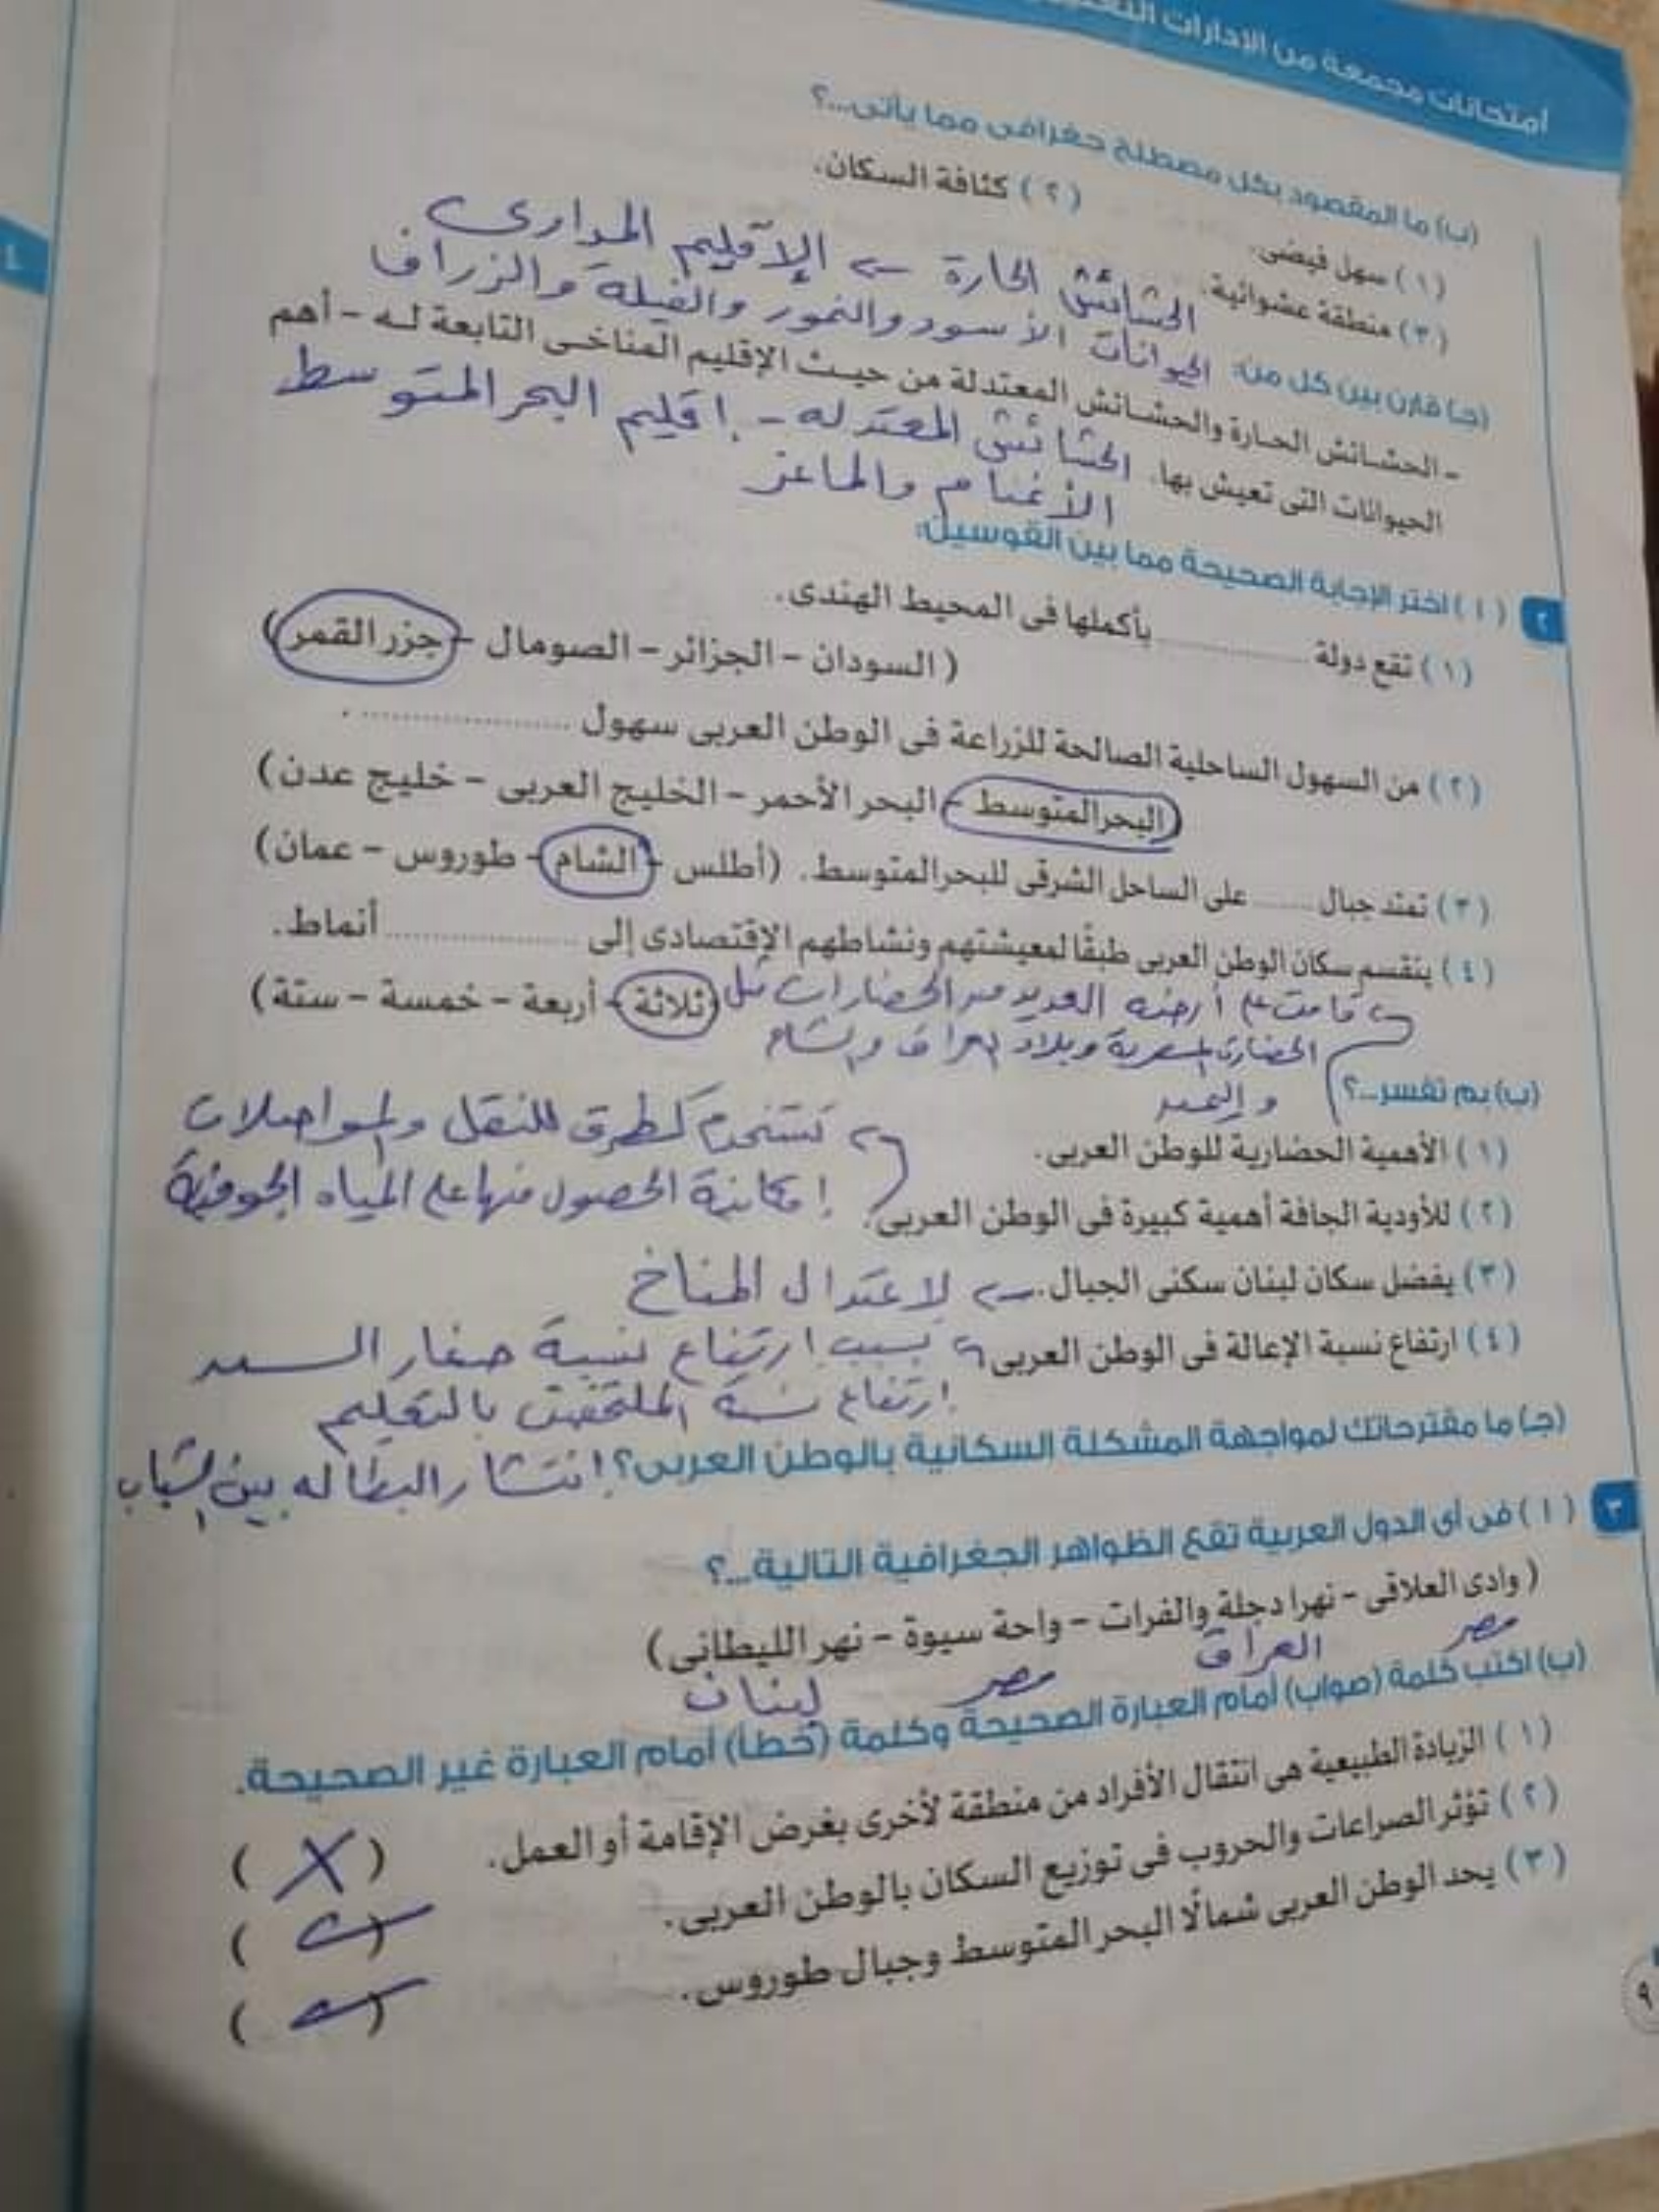 امتحانات مجمعة من الادارات
(ب) ما المقصود بكل مصطلح جغرافى مما يأتى...؟
(١) سهل فيضى.
(٢) كثافة السكان.
(٣) منطقة عشوائية.
الحشائش الحارة ← الإقليم المدارى
الحيوانات الأسود والنمور والفيلة والزراف
(جـ) قارن بين كل من:
- الحشائش الحارة والحشائش المعتدلة من حيث الإقليم المناخى التابعة له - أهم
الحيوانات التى تعيش بها.
الحشائش المعتدله - إقليم البحر المتوسط
الأغنام والماعز
٢ (ا) اختر الإجابة الصحيحة مما بين القوسين:
(١) تقع دولة .......... بأكملها فى المحيط الهندى.
(السودان - الجزائر - الصومال - جزر القمر)
(٢) من السهول الساحلية الصالحة للزراعة فى الوطن العربى سهول .......... .
(البحر المتوسط - البحر الأحمر - الخليج العربى - خليج عدن)
(٣) تمتد جبال ...... على الساحل الشرقى للبحر المتوسط. (أطلس - الشام - طوروس - عمان)
(٤) ينقسم سكان الوطن العربى طبقًا لمعيشتهم ونشاطهم الإقتصادى إلى .......... أنماط.
(ثلاثة - أربعة - خمسة - ستة)
قامت على أرضه العديد من الحضارات مثل
الحضارة المصرية وبلاد العراق والشام
واليمن
(ب) بم تفسر...؟
(١) الأهمية الحضارية للوطن العربى.
تستخدم كطرق للنقل والمواصلات
(٢) للأودية الجافة أهمية كبيرة فى الوطن العربى.
إمكانية الحصول منها على المياه الجوفية
(٣) يفضل سكان لبنان سكنى الجبال. ← لاعتدال المناخ
(٤) ارتفاع نسبة الإعالة فى الوطن العربى. بسبب ارتفاع نسبة صغار السن
ارتفاع نسبة الملتحقين بالتعليم
(جـ) ما مقترحاتك لمواجهة المشكلة السكانية بالوطن العربى؟ إنتشار البطاله بين الشباب
٣ (ا) فى أى الدول العربية تقع الظواهر الجغرافية التالية...؟
(وادى العلاقى - نهرا دجلة والفرات - واحة سيوة - نهر الليطانى)
مصر العراق مصر لبنان
(ب) اكتب كلمة (صواب) أمام العبارة الصحيحة وكلمة (خطأ) أمام العبارة غير الصحيحة.
(١) الزيادة الطبيعية هى انتقال الأفراد من منطقة لأخرى بغرض الإقامة أو العمل. (X)
(٢) تؤثر الصراعات والحروب فى توزيع السكان بالوطن العربى. (✓)
(٣) يحد الوطن العربى شمالًا البحر المتوسط وجبال طوروس. (✓)
٩